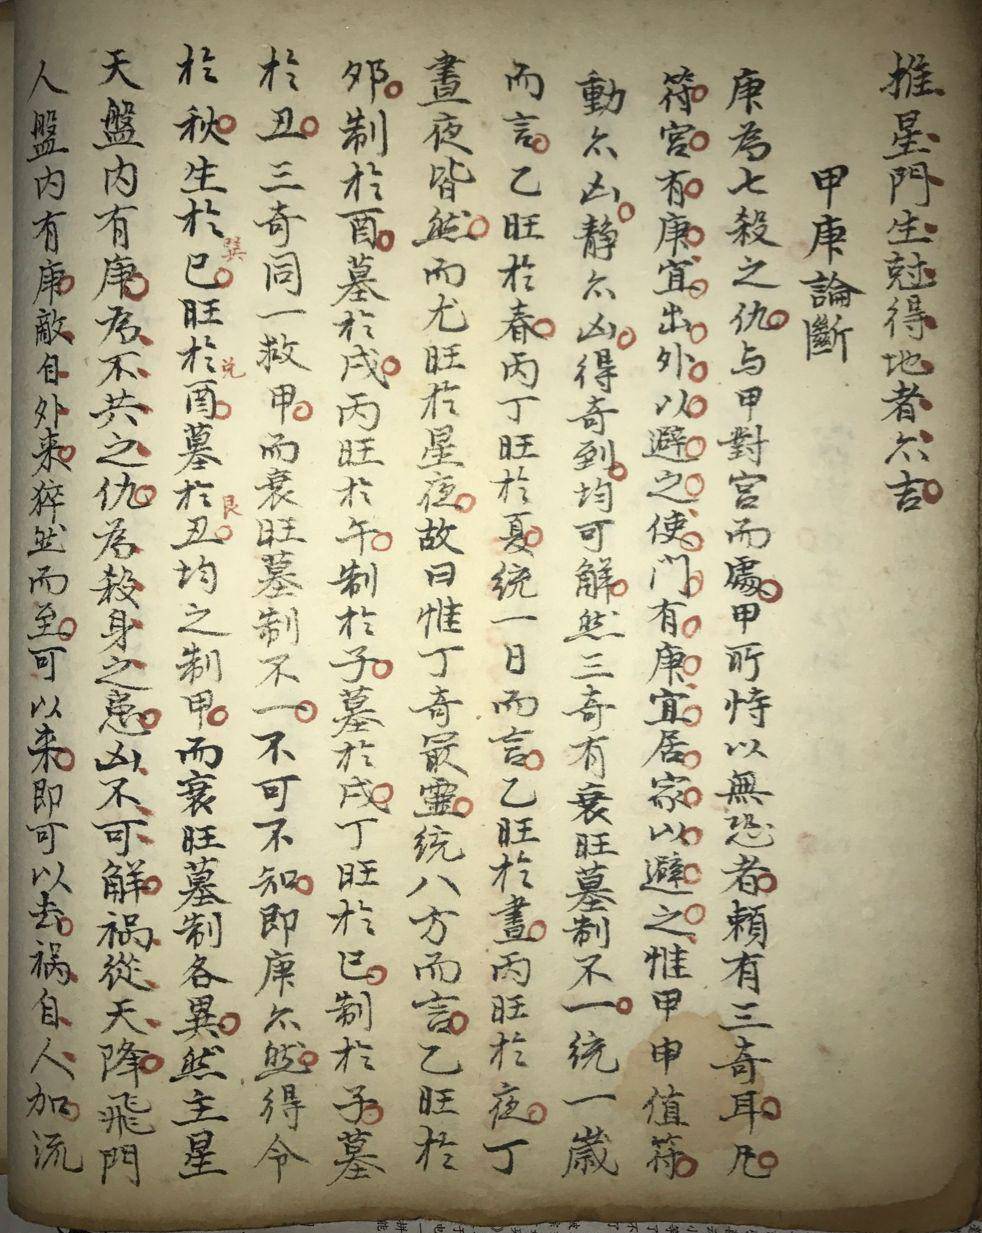 推星門生尅得地者亦吉
甲庚論斷
庚為七殺之仇与甲對宮而處甲所恃以無恐者賴有三奇耳凡
符宮有庚宜出外以避之使门有庚宜居家以避之惟甲申值符
動亦凶静亦凶得奇到均可解然三奇有衰旺墓制不一統一歲
而言乙旺於春丙丁旺於夏統一日而言乙旺於晝丙旺於夜丁
晝夜皆然而尤旺於星夜故曰惟丁奇最靈統八方而言乙旺於
夘制於酉墓於戌丙旺於午制於子墓於戌丁旺於巳制於子墓
於丑三奇同一救甲而衰旺墓制不一不可不知即庚亦然得令
於秋生於巳巽旺於酉兌墓於丑艮均之制甲而衰旺墓制各異然主星
天盤内有庚為不共之仇為殺身之患凶不可解禍從天降飛門
人盤内有庚敵自外来猝然而至可以来即可以去禍自人加流